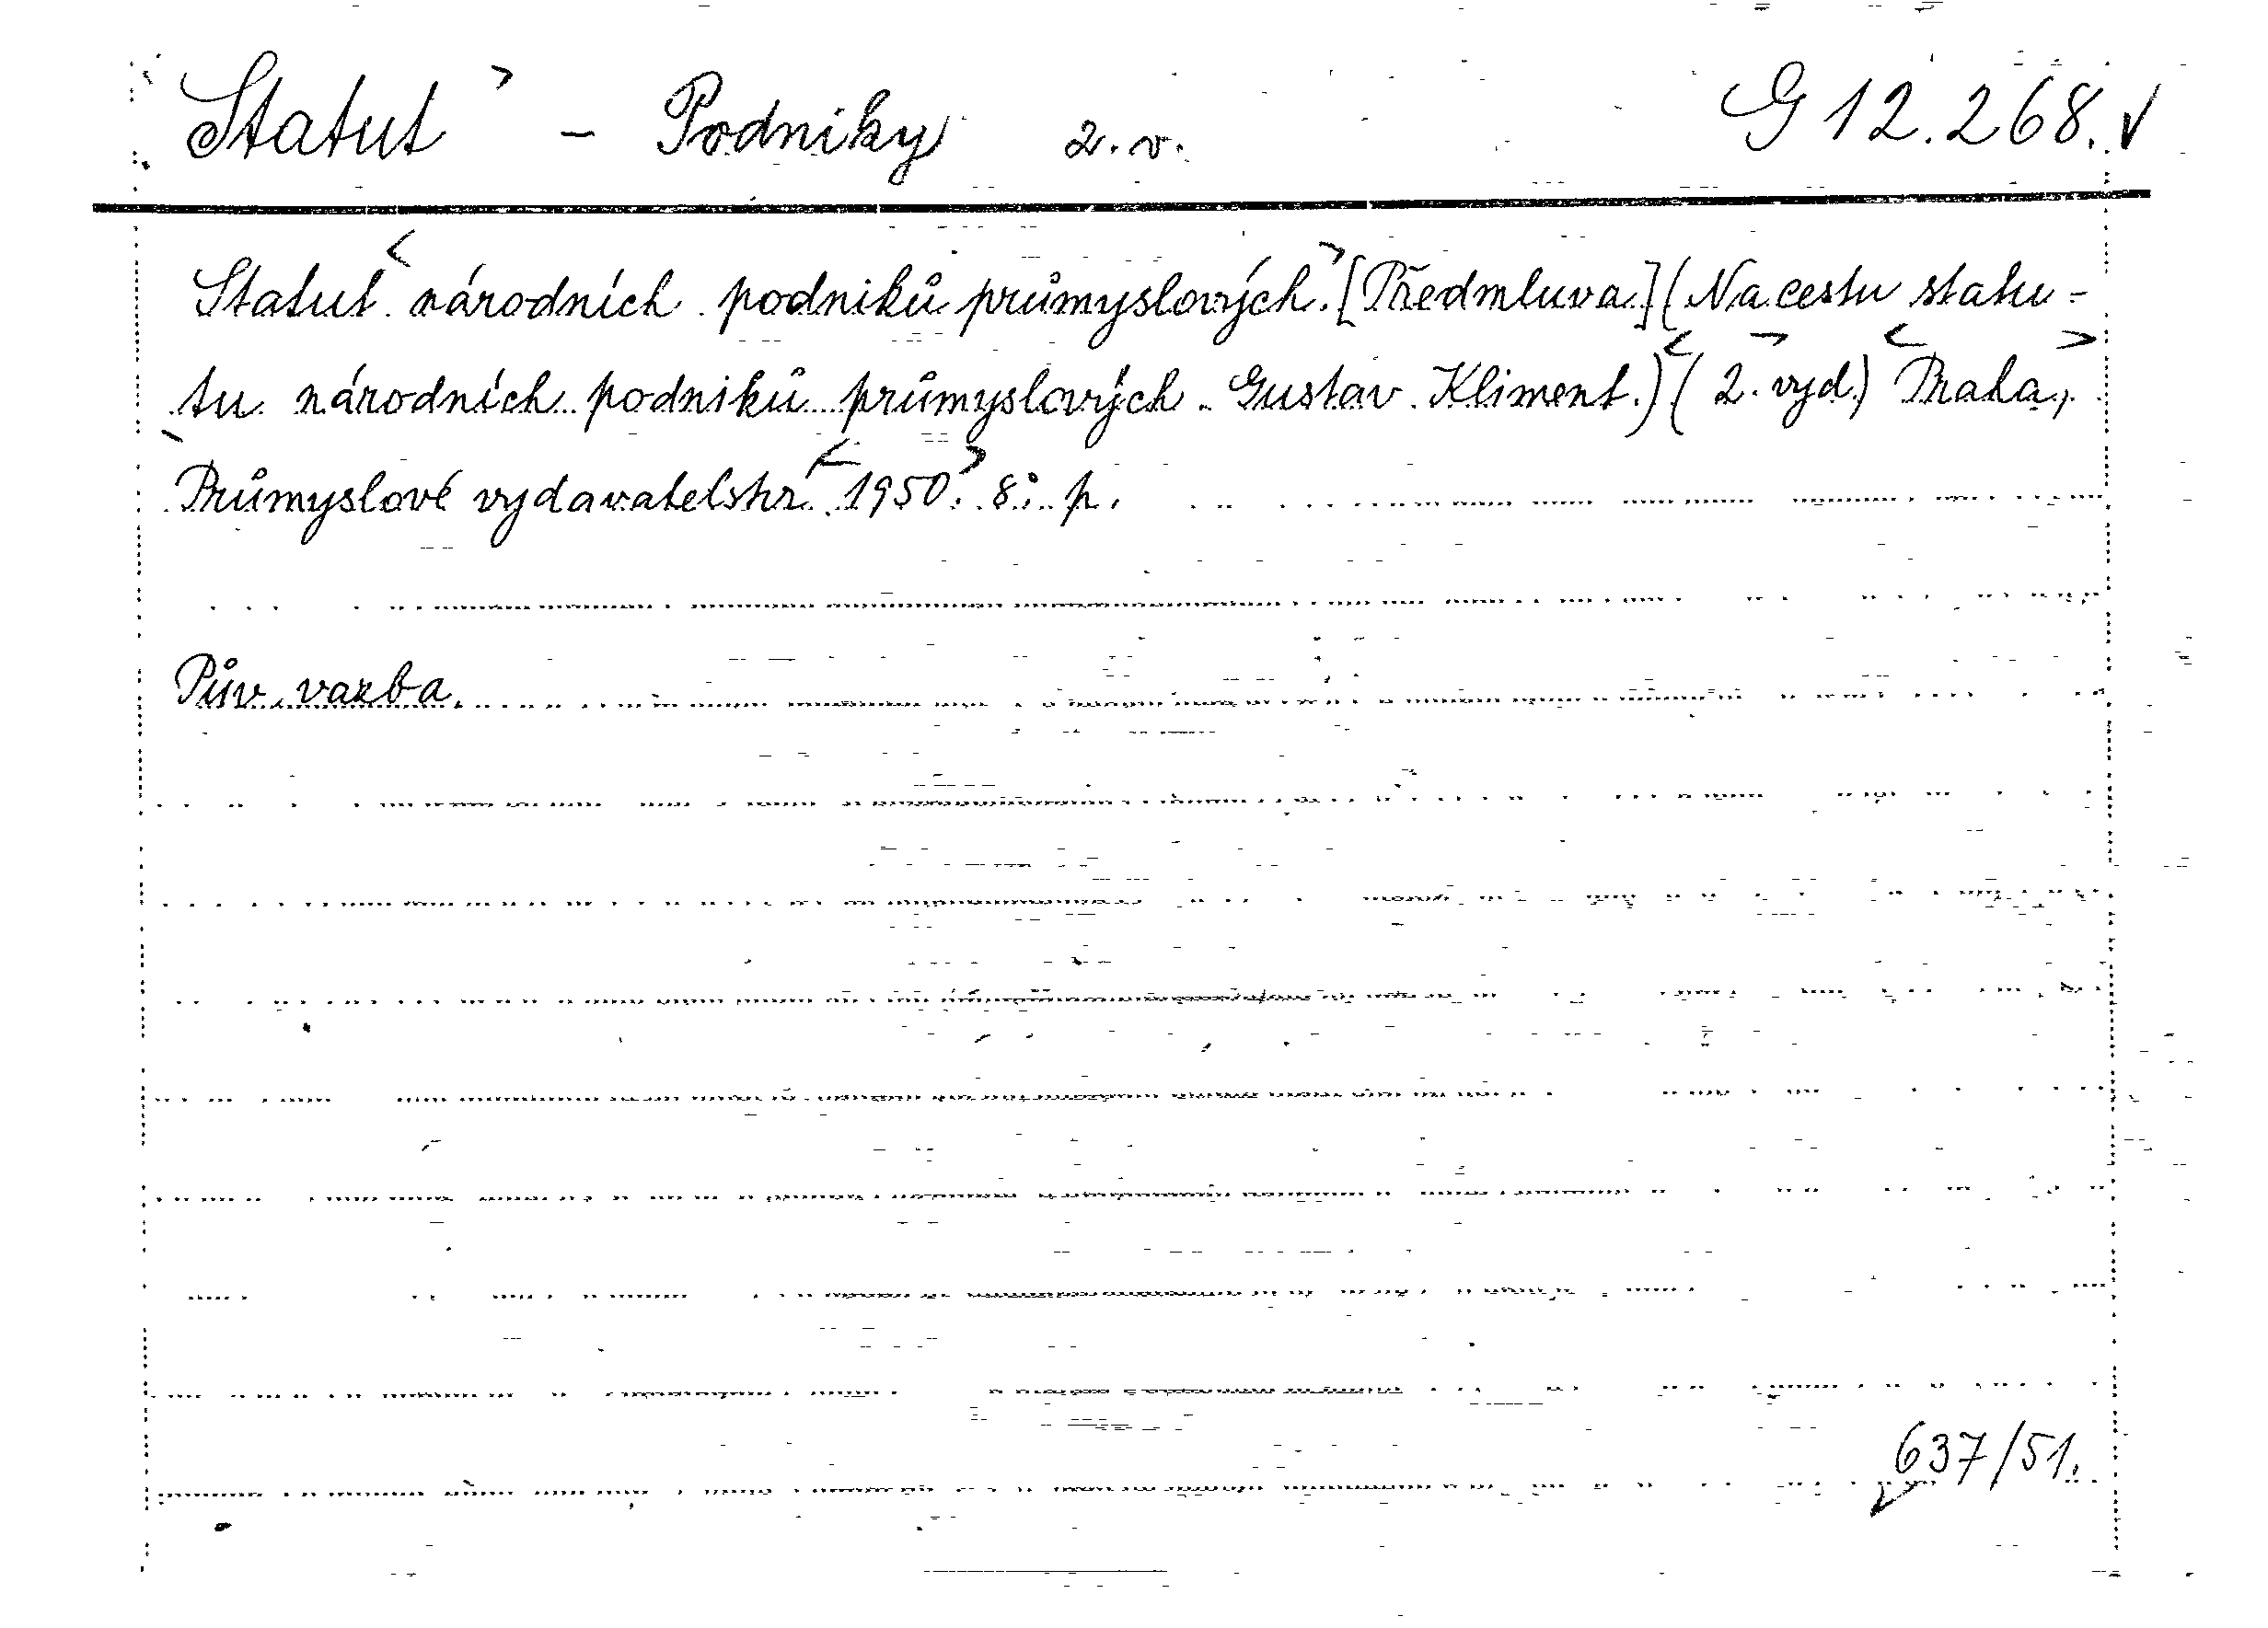 Statut - Podniky 2.v. G 12.268.
Statut národních podniků průmyslových. [Předmluva.] (Na cestu statu-
tu národních podniků průmyslových. Gustav Kliment.) (2. vyd.) Praha,
Průmyslové vydavatelstv. 1950. 8°. p.
Pův. vazba.
637/51.